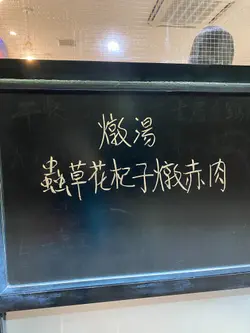 燉湯
蟲草花杞子燉赤肉